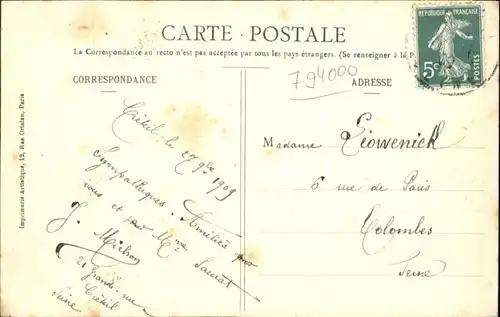 CARTE - POSTALE
La Correspondance au recto n'est pas acceptée par tous les pays étrangers. (Se renseigner à la P
CORRESPONDANCE
794000
ADRESSE
REPUBLIQUE FRANÇAISE
5c
Créteil le 27 9bre 1909
Sympathiques Amitiés pour
vous et pour Mme Saurat
J. Michon
21 Grande rue
Créteil
Seine
Madame Liowenick
6 rue de Paris
Colombes
Seine
Imprimerie Artistique, 12, Rue Ortolan, Paris